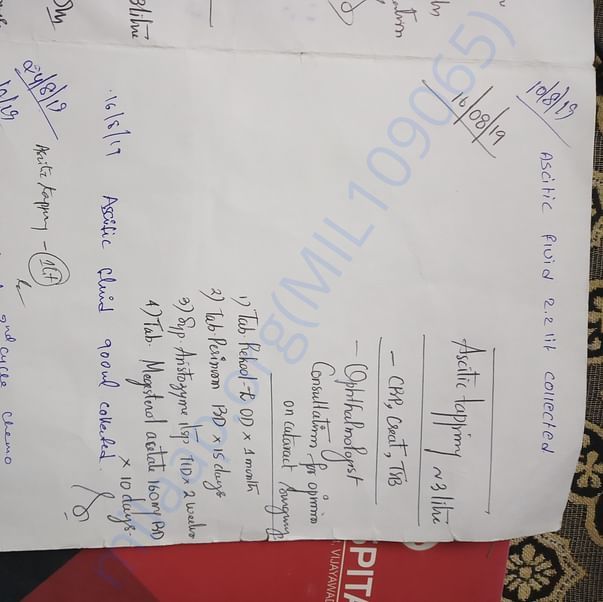 3 litre
10/8/19 Ascitic fluid 2.2 lit collected
16/08/19
Ascitic tapping ~3 litre
- CBP, Creat, TSB
- Ophthalmologist
Consultation for opinion
on cataract surgery
1) Tab. OD x 1 month
2) Tab. BD x 15 days
3) Syp. Aristozyme TID x 2 weeks
4) Tab. Megesterol acetate 160mg BD
x 10 days.
16/8/19 Ascitic fluid 900ml collected.
24/8/19
Ascitic tapping - 1 lit
2nd cycle chemo
milaap.org(MIL109065)
SPITA
VIJAYAWAD